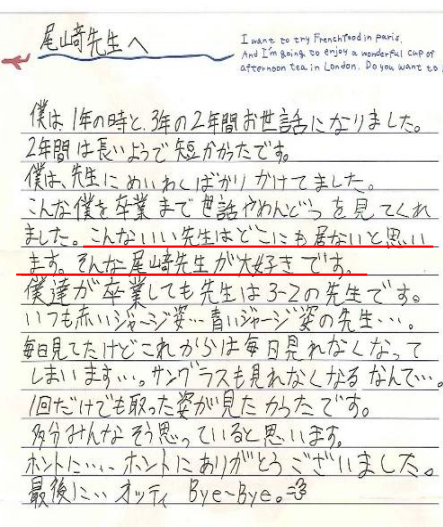 尾山奇先生へ
I want to try French food in paris.
And I'm going to enjoy a wonderful cup of
afternoon tea in London. Do you want to
僕は、1年の時と、3年の2年間お世話になりました。
2年間は長いようで短かかったです。
僕は、先生にめいわくばかりかけてました。
こんな僕を卒業まで世話やめんどうを見てくれ
ました。こんないい先生はどこにも居ないと思い
ます。そんな尾山奇先生が大好きです。
僕達が卒業しても先生は3-2の先生です。
いつも赤いジャージ姿…青いジャージ姿の先生…。
毎日見てたけどこれからは毎日見れなくなって
しまいます…。サングラスも見れなくなるなんて…。
1回だけでも取った姿が見たかったです。
多分みんなそう思っていると思います。
ホントに…ホントにありがとうございました。
最後に… オッティ Bye-Bye。